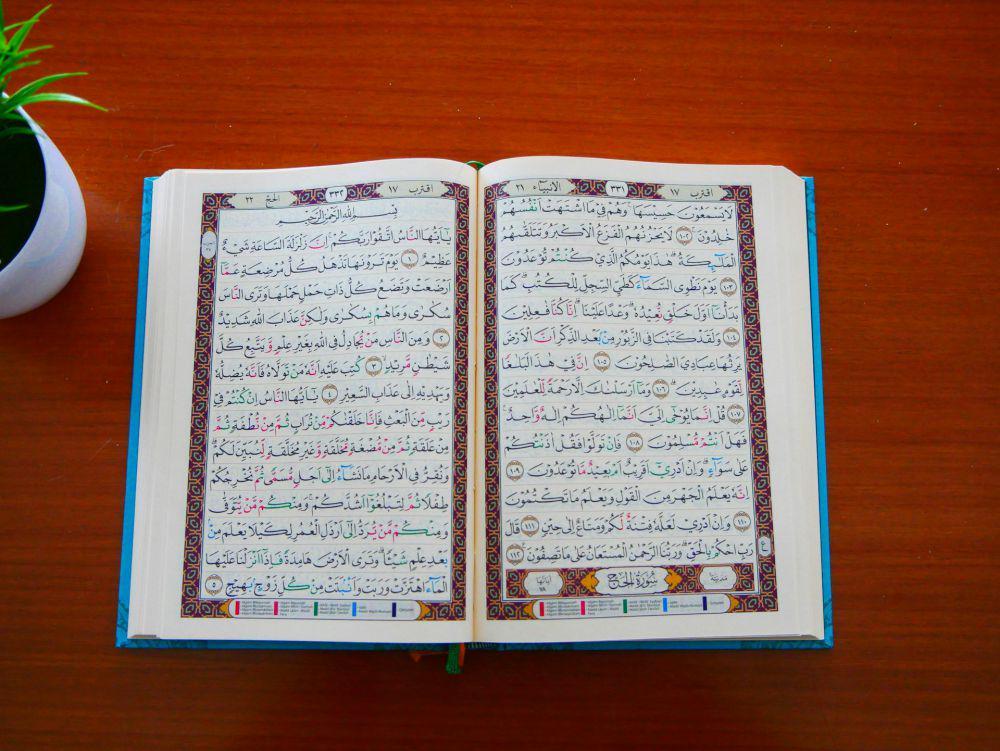 اقترب ١٧
٣٣١
الانبياۤء ٢١
لَا يَسْمَعُوْنَ حَسِيْسَهَاۚ وَهُمْ فِيْ مَا اشْتَهَتْ اَنْفُسُهُمْ
خٰلِدُوْنَ ۚ ١٠٢ لَا يَحْزُنُهُمُ الْفَزَعُ الْاَكْبَرُ وَتَتَلَقّٰىهُمُ
الْمَلٰۤىِٕكَةُۗ هٰذَا يَوْمُكُمُ الَّذِيْ كُنْتُمْ تُوْعَدُوْنَ
١٠٣ يَوْمَ نَطْوِى السَّمَاۤءَ كَطَيِّ السِّجِلِّ لِلْكُتُبِۗ كَمَا
بَدَأْنَآ اَوَّلَ خَلْقٍ نُّعِيْدُهٗۗ وَعْدًا عَلَيْنَاۗ اِنَّا كُنَّا فٰعِلِيْنَ
١٠٤ وَلَقَدْ كَتَبْنَا فِى الزَّبُوْرِ مِنْۢ بَعْدِ الذِّكْرِ اَنَّ الْاَرْضَ
يَرِثُهَا عِبَادِيَ الصّٰلِحُوْنَ ١٠٥ اِنَّ فِيْ هٰذَا لَبَلٰغًا
لِّقَوْمٍ عٰبِدِيْنَ ۗ ١٠٦ وَمَآ اَرْسَلْنٰكَ اِلَّا رَحْمَةً لِّلْعٰلَمِيْنَ
١٠٧ قُلْ اِنَّمَا يُوْحٰٓى اِلَيَّ اَنَّمَآ اِلٰهُكُمْ اِلٰهٌ وَّاحِدٌۚ
فَهَلْ اَنْتُمْ مُّسْلِمُوْنَ ١٠٨ فَاِنْ تَوَلَّوْا فَقُلْ اٰذَنْتُكُمْ
عَلٰى سَوَاۤءٍۗ وَاِنْ اَدْرِيْٓ اَقَرِيْبٌ اَمْ بَعِيْدٌ مَّا تُوْعَدُوْنَ ١٠٩
اِنَّهٗ يَعْلَمُ الْجَهْرَ مِنَ الْقَوْلِ وَيَعْلَمُ مَا تَكْتُمُوْنَ
١١٠ وَاِنْ اَدْرِيْ لَعَلَّهٗ فِتْنَةٌ لَّكُمْ وَمَتَاعٌ اِلٰى حِيْنٍ ١١١ قٰلَ
رَبِّ احْكُمْ بِالْحَقِّۗ وَرَبُّنَا الرَّحْمٰنُ الْمُسْتَعَانُ عَلٰى مَا تَصِفُوْنَ ١١٢
مدنية
سُوْرَةُ الْحَجِّ
اٰياتها ٧٨
اقترب ١٧
٣٣٢
الحج ٢٢
بِسْمِ اللّٰهِ الرَّحْمٰنِ الرَّحِيْمِ
يٰٓاَيُّهَا النَّاسُ اتَّقُوْا رَبَّكُمْۚ اِنَّ زَلْزَلَةَ السَّاعَةِ شَيْءٌ
عَظِيْمٌ ١ يَوْمَ تَرَوْنَهَا تَذْهَلُ كُلُّ مُرْضِعَةٍ عَمَّآ
اَرْضَعَتْ وَتَضَعُ كُلُّ ذَاتِ حَمْلٍ حَمْلَهَا وَتَرَى النَّاسَ
سُكٰرٰى وَمَا هُمْ بِسُكٰرٰى وَلٰكِنَّ عَذَابَ اللّٰهِ شَدِيْدٌ
٢ وَمِنَ النَّاسِ مَنْ يُّجَادِلُ فِى اللّٰهِ بِغَيْرِ عِلْمٍ وَّيَتَّبِعُ كُلَّ
شَيْطٰنٍ مَّرِيْدٍۙ ٣ كُتِبَ عَلَيْهِ اَنَّهٗ مَنْ تَوَلَّاهُ فَاَنَّهٗ يُضِلُّهٗ
وَيَهْدِيْهِ اِلٰى عَذَابِ السَّعِيْرِ ٤ يٰٓاَيُّهَا النَّاسُ اِنْ كُنْتُمْ فِيْ
رَيْبٍ مِّنَ الْبَعْثِ فَاِنَّا خَلَقْنٰكُمْ مِّنْ تُرَابٍ ثُمَّ مِنْ نُّطْفَةٍ ثُمَّ
مِنْ عَلَقَةٍ ثُمَّ مِنْ مُّضْغَةٍ مُّخَلَّقَةٍ وَّغَيْرِ مُخَلَّقَةٍ لِّنُبَيِّنَ لَكُمْۗ
وَنُقِرُّ فِى الْاَرْحَامِ مَا نَشَاۤءُ اِلٰٓى اَجَلٍ مُّسَمًّى ثُمَّ نُخْرِجُكُمْ
طِفْلًا ثُمَّ لِتَبْلُغُوْٓا اَشُدَّكُمْۚ وَمِنْكُمْ مَّنْ يُّتَوَفّٰى
وَمِنْكُمْ مَّنْ يُّرَدُّ اِلٰٓى اَرْذَلِ الْعُمُرِ لِكَيْلَا يَعْلَمَ مِنْۢ
بَعْدِ عِلْمٍ شَيْـًٔاۗ وَتَرَى الْاَرْضَ هَامِدَةً فَاِذَآ اَنْزَلْنَا عَلَيْهَا
الْمَاۤءَ اهْتَزَّتْ وَرَبَتْ وَاَنْۢبَتَتْ مِنْ كُلِّ زَوْجٍۢ بَهِيْجٍ ٥